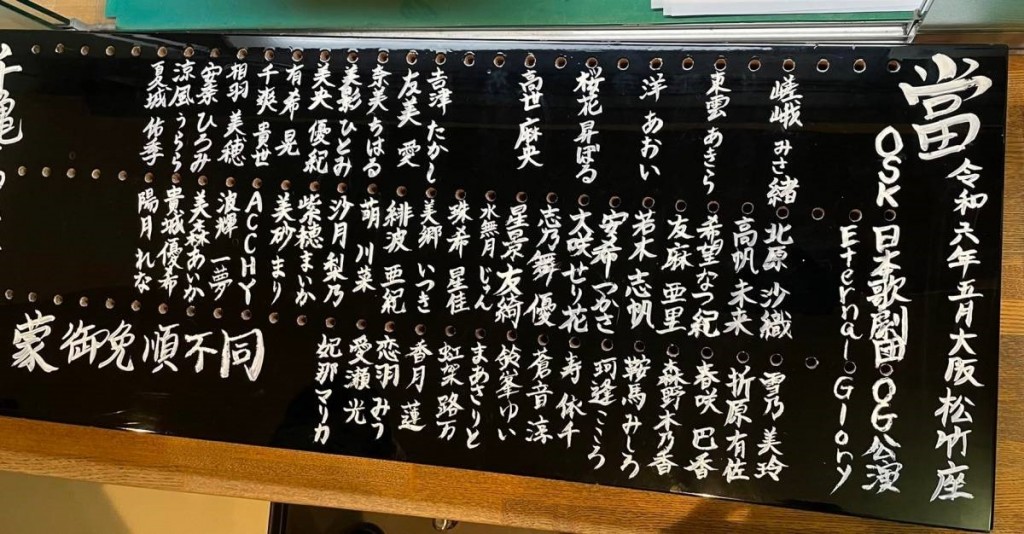 當
令和六年五月大阪松竹座
OSK日本歌劇団OG公演
Eternal Glory
嵯峨 みさ緒
東雲 あきら
洋 あおい
桜花 昇ぼる
高世 麻央
吉津 たかし
友美 愛
奈美 ちはる
ひとみ
美央 優紀
有希 晃
千爽 貴世
相羽 美穂
涼風 うらら
夏城 佑季
北原 沙織
高帆 未来
希望 なつ紀
友麻 亜里
若木 志帆
安希 つかさ
大咲 せり花
志乃舞 優
星景 友綺
水無月 じゅん
珠希 星佳
美郷 いつき
緋波 亜紀
萌 川菜
沙月 梨乃
紫穂 まいか
美砂 まり
ACCHY
波輝 一夢
美森 あいか
貴城 優希
陽月 れな
雪乃 美玲
折原 有佐
春咲 巴香
森野 木乃香
鞍馬 みしろ
珂逢 こころ
寿 依千
蒼音 淳
鈴峯 ゆい
まあさ りと
虹架 路万
香月 蓮
恋羽 みう
愛瀬 光
妃那 マリカ
蒙御免順不同